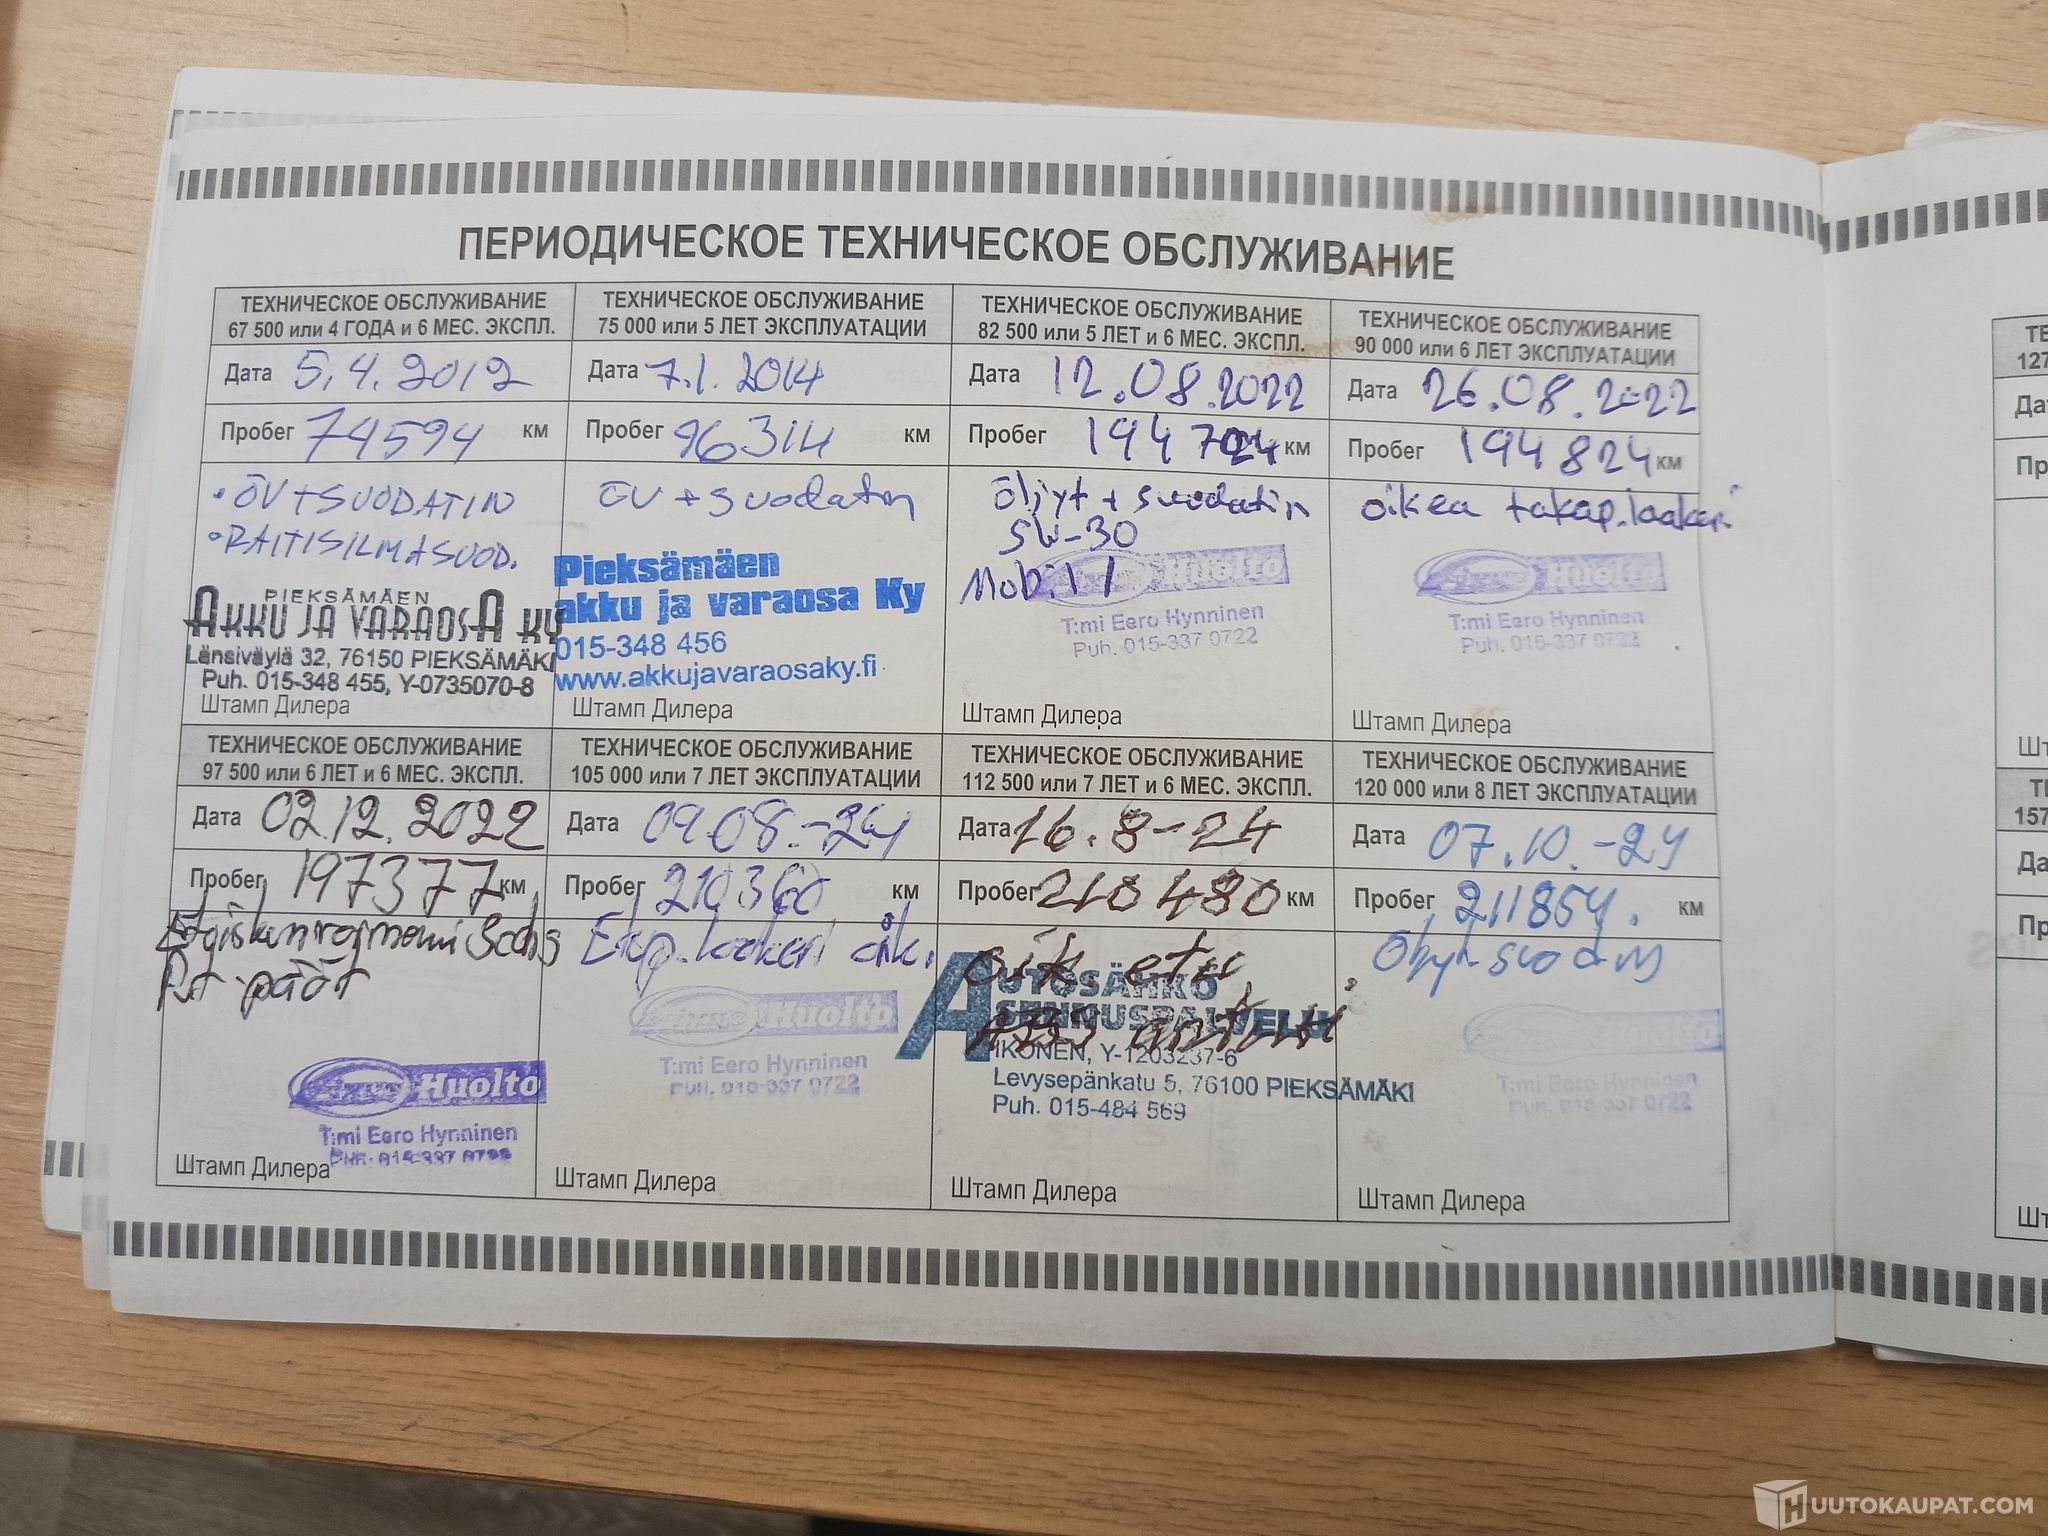 ПЕРИОДИЧЕСКОЕ ТЕХНИЧЕСКОЕ ОБСЛУЖИВАНИЕ
ТЕХНИЧЕСКОЕ ОБСЛУЖИВАНИЕ
67 500 или 4 ГОДА и 6 МЕС. ЭКСПЛ.
Дата 5.4.2012
Пробег 74594 км
• ÖV+SUODATIN
• RAITISILMASUOD.
PIEKSÄMÄEN
AKKU JA VARAOSA KY
Länsiväylä 32, 76150 PIEKSÄMÄKI
Puh. 015-348 455, Y-0735070-8
Штамп Дилера
ТЕХНИЧЕСКОЕ ОБСЛУЖИВАНИЕ
75 000 или 5 ЛЕТ ЭКСПЛУАТАЦИИ
Дата 7.1.2014
Пробег 96314 км
ÖV + suodatin
Pieksämäen
akku ja varaosa Ky
015-348 456
www.akkujavaraosaky.fi
Штамп Дилера
ТЕХНИЧЕСКОЕ ОБСЛУЖИВАНИЕ
82 500 или 5 ЛЕТ и 6 МЕС. ЭКСПЛ.
Дата 12.08.2022
Пробег 194 704 км
Öljyt + suodatin
5W-30
Mobil 1
Huolto
T:mi Eero Hynninen
Puh. 015-337 0722
Штамп Дилера
ТЕХНИЧЕСКОЕ ОБСЛУЖИВАНИЕ
90 000 или 6 ЛЕТ ЭКСПЛУАТАЦИИ
Дата 26.08.2022
Пробег 194 824 км
oikea takap.laakeri
Huolto
T:mi Eero Hynninen
Puh. 015-337 0722
Штамп Дилера
ТЕХНИЧЕСКОЕ ОБСЛУЖИВАНИЕ
97 500 или 6 ЛЕТ и 6 МЕС. ЭКСПЛ.
Дата 02.12.2022
Пробег 197377 км
päät
Huolto
T:mi Eero Hynninen
Puh. 015-337 0722
Штамп Дилера
ТЕХНИЧЕСКОЕ ОБСЛУЖИВАНИЕ
105 000 или 7 ЛЕТ ЭКСПЛУАТАЦИИ
Дата 09.08.-24
Пробег 210360 км
Etup.laakeri oik.
Huolto
T:mi Eero Hynninen
Puh. 015-337 0722
Штамп Дилера
ТЕХНИЧЕСКОЕ ОБСЛУЖИВАНИЕ
112 500 или 7 ЛЕТ и 6 МЕС. ЭКСПЛ.
Дата 16.8-24
Пробег 210 480 км
oik. etu
ABS anturi
AUTOSÄHKÖ
ASENNUSPALVELU
IKONEN, Y-1203237-6
Levysepänkatu 5, 76100 PIEKSÄMÄKI
Puh. 015-484 569
Штамп Дилера
ТЕХНИЧЕСКОЕ ОБСЛУЖИВАНИЕ
120 000 или 8 ЛЕТ ЭКСПЛУАТАЦИИ
Дата 07.10.-24
Пробег 211854. км
Huolto
T:mi Eero Hynninen
Puh. 015-337 0722
Штамп Дилера
127
Да
Пр
Шт
157
Да
Пр
Шт
HUUTOKAUPAT.COM